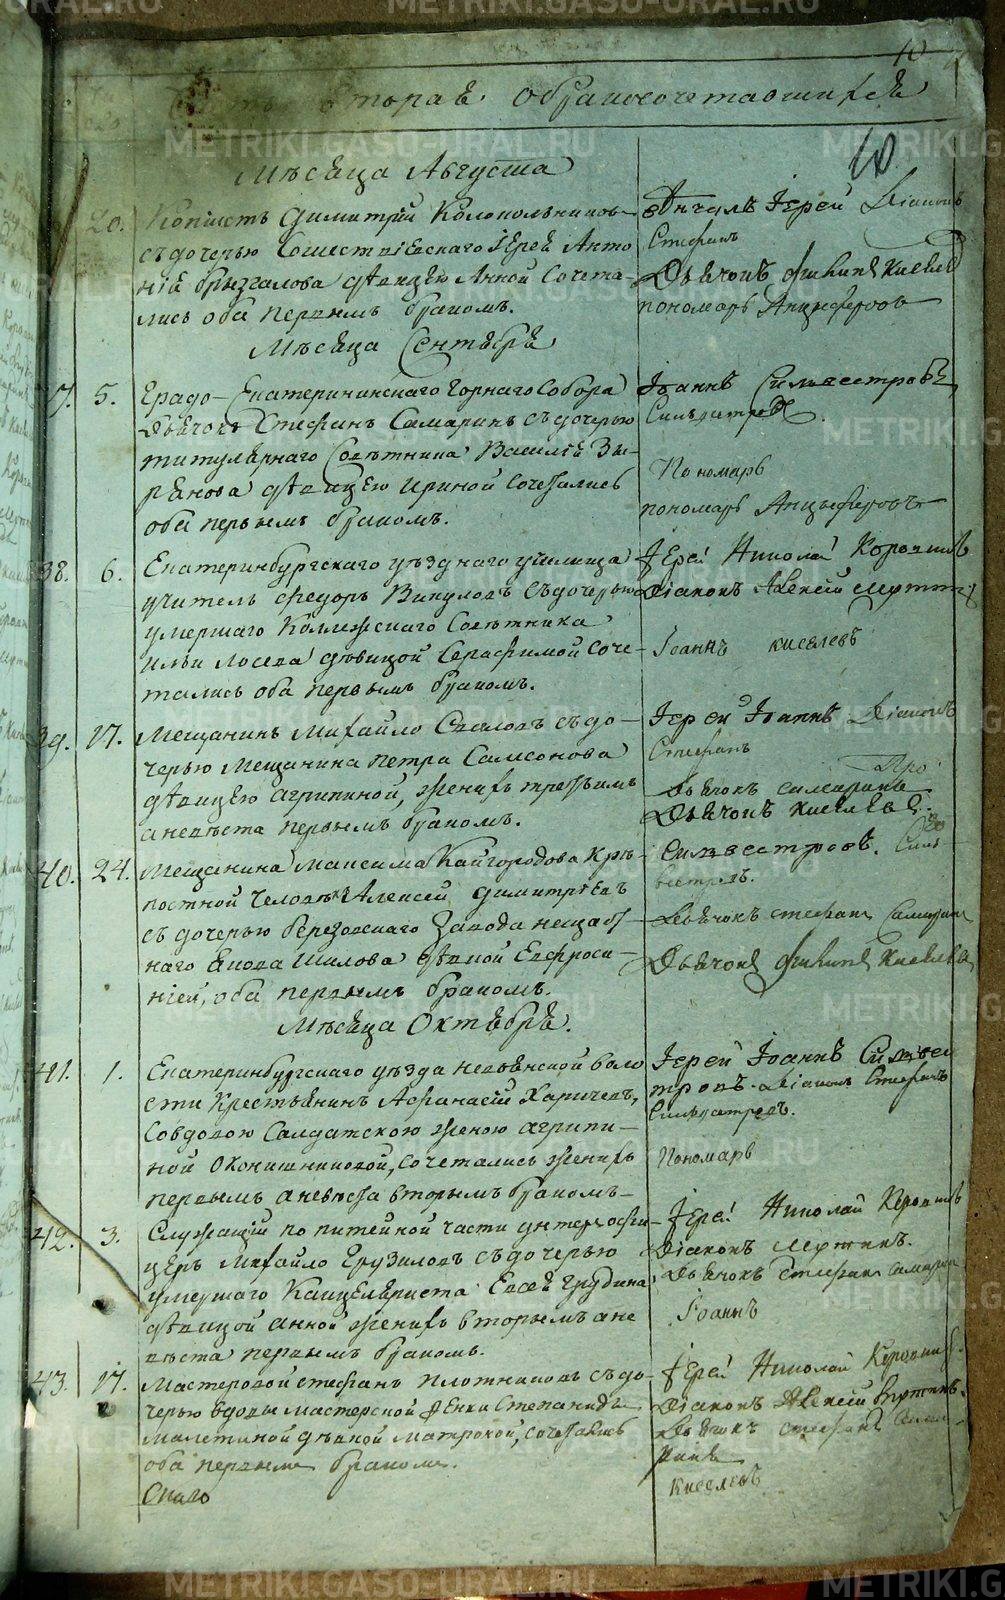 10
Часть вторая о бракосочетавшихся
10
Мѣсяца Августа
20. Копіистъ Димитрій Колокольников
съ дочерью Сошествіевскаго Іерея Анто
нія Брызгалова дѣвицею Анной Сочета-
лись оба первымъ бракомъ.
вѣнчалъ Іерей Діаконъ
Стефанъ
Дьячокъ Филипъ Киселев
пономарь Анцыферовъ
Мѣсяца Сентября
5. Градо-Екатерининскаго Горнаго Собора
дьячокъ Стефанъ Самаринъ съ дочерью
титулярнаго Совѣтника Василія Зы-
рянова дѣвицею Ириной сочетались
оба первымъ бракомъ.
Іоаннъ Сильвестровъ
Сильвестровъ
Пономарь
пономарь Анцыферовъ
38. 6. Екатеринбургскаго уѣзднаго училища
учитель Федоръ Викуловъ съ дочерью
умершаго Коллежскаго Совѣтника
Ильи Лосева дѣвицой Серафимой соче-
тались оба первымъ бракомъ.
Іерей Николай
Діаконъ Алексій
Іоаннъ Киселевъ
39. 17. Мещанинъ Михайло съ до-
черью Мещанина Петра Самсонова
дѣвицею Агрипиной, женихъ третьимъ
а невѣста первымъ бракомъ.
Іерей Іоаннъ Діаконъ
Стефанъ
Дьячокъ Самаринъ
Дьячокъ Киселевъ.
40. 24. Мещанина Максима Кайгородова Крѣ-
постной человѣкъ Алексей Димитріевъ
съ дочерью Березовскаго Завода
наго Якова Шилова дѣвкой Евфроси-
ніей, оба первымъ бракомъ.
Сильвестровъ. Силь
вестровъ.
Дьячокъ Стефанъ Самарин
Дьячокъ Филипъ Киселев
Мѣсяца Октября.
41. 1. Екатеринбургскаго уѣзда Невьянской воло
сти Крестьянинъ Афанасій Харичевъ,
Совдовою Салдатскою женою Агрипи-
ной Оконишниковой, сочетались женихъ
первымъ а невѣста вторымъ бракомъ-
Іерей Іоаннъ Сильвес
тровъ. Діаконъ Стефанъ
Сильвестровъ.
Пономарь
42. 3. Служащій по питейной части унтер офи-
церъ Михайло Грузиловъ съ дочерью
умершаго Канцеляриста Евсея Грудина
дѣвицой Анной женихъ вторымъ а не
вѣста первымъ бракомъ.
Іерей Николай
Діаконъ
Дьячокъ Стефанъ Самарин
Іоаннъ
43. 17. Мастеровой Стефанъ Плотниковъ съ до-
черью вдовы мастерской женки Степаниды
Малетиной дѣвкой Матроной, сочетались
оба первымъ бракомъ.
Діаконъ Алексій
Іерей Николай
Дьячокъ Стефанъ Сама-
ринъ
Киселевъ